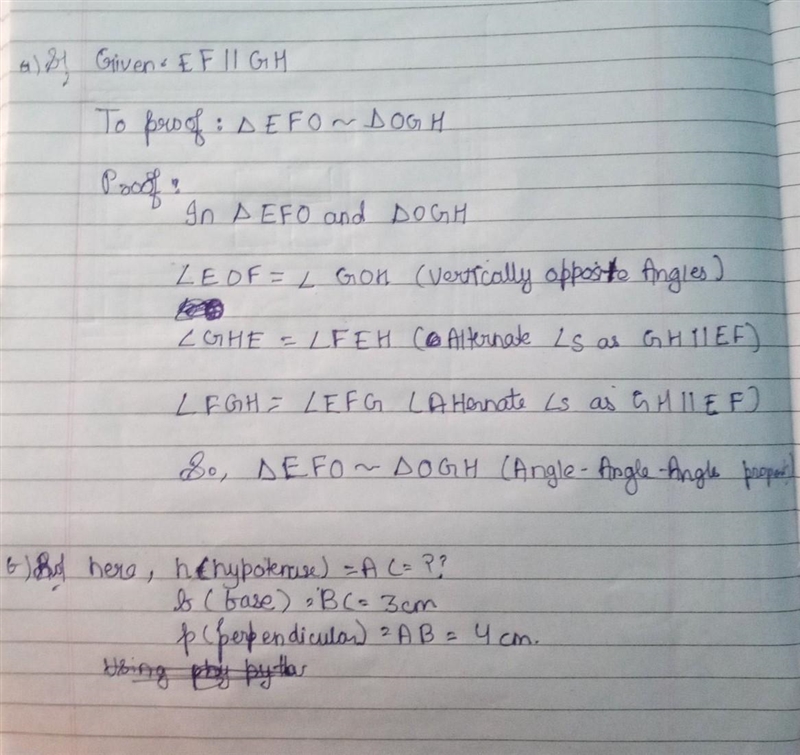 a) Given: EF || GH
To proof: △EFO ~ △OGH
Proof:
In △EFO and △OGH
∠EOF = ∠ GOH (Vertically opposite Angles)
∠GHE = ∠FEH (Alternate ∠s as GH || EF)
∠FGH = ∠EFG (Alternate ∠s as GH || EF)
So, △EFO ~ △OGH (Angle-Angle-Angle
here, h(hypotenuse) = AC = ??
b (base) = BC = 3 cm
p(perpendicular) = AB = 4 cm.